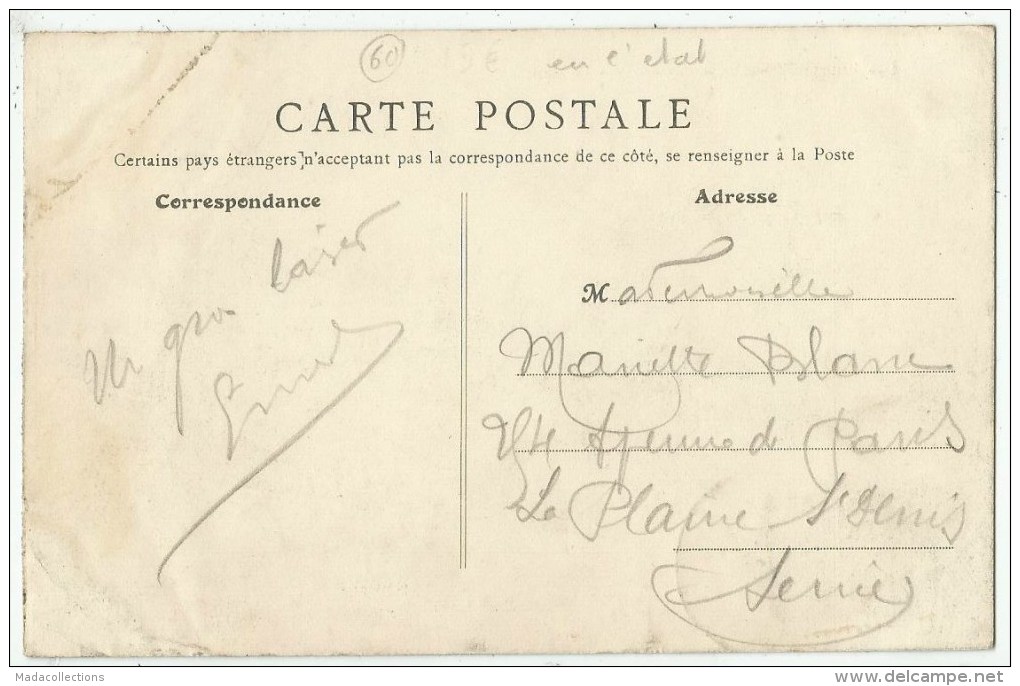 60 5€ en l'état
CARTE POSTALE
Certains pays étrangers n'acceptant pas la correspondance de ce côté, se renseigner à la Poste
Correspondance
Un gros baiser
Adresse
Mademoiselle
Mariette Blanc
Avenue de Paris
La Plaine St Denis
Seine
Madacollections
www.delcampe.net